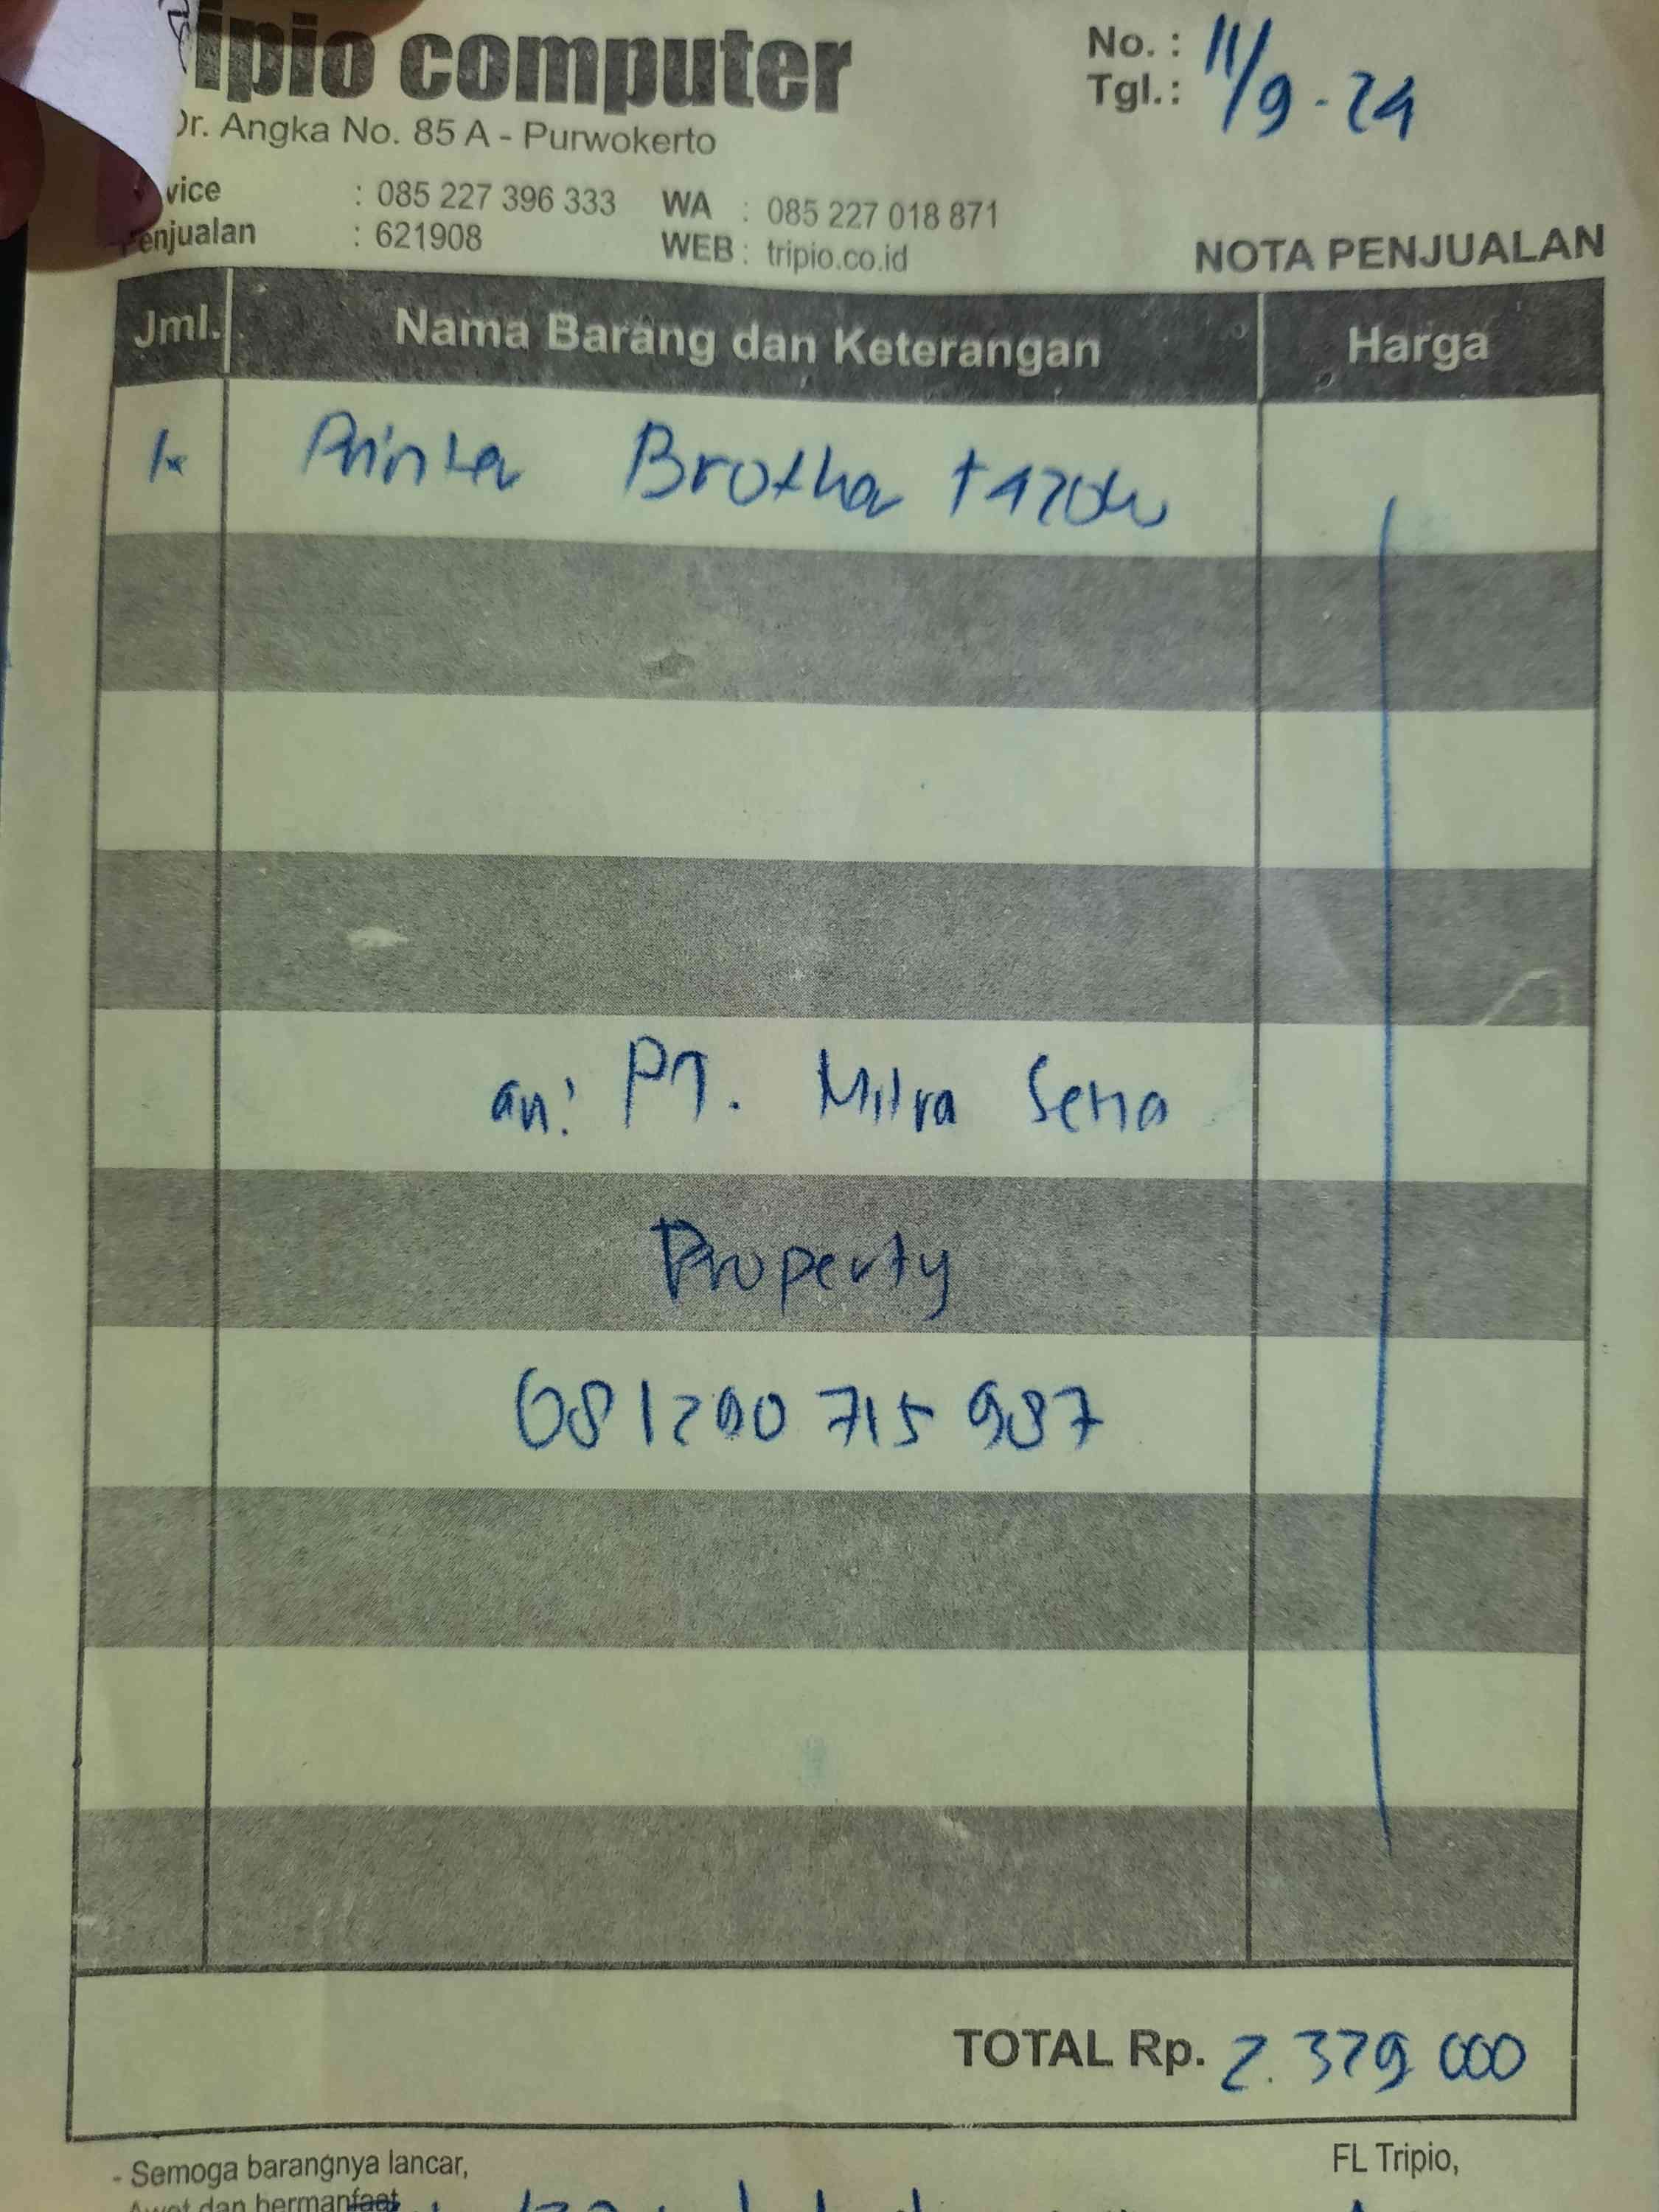 ipio computer
Dr. Angka No. 85 A - Purwokerto
No. :
Tgl.: 11/9-24
vice : 085 227 396 333 WA : 085 227 018 871
Penjualan : 621908 WEB : tripio.co.id
NOTA PENJUALAN
Jml. Nama Barang dan Keterangan Harga
1x Printer Brother t420w
an: PT. Mitra Setia
Property
081200 715 987
TOTAL Rp. 2.379 000
- Semoga barangnya lancar, FL Tripio,
Awet dan bermanfaat